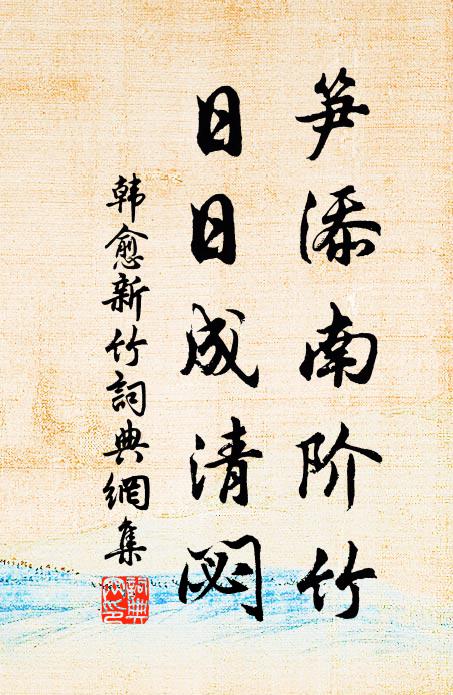 笋添南阶竹
日日成清閟
韩愈新竹詞典網集